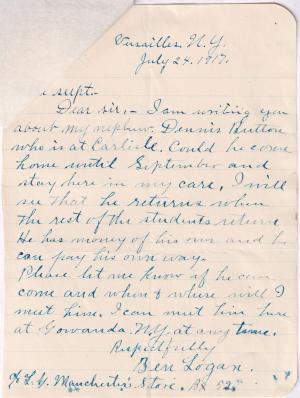 Versailles, N.Y.
July 24, 1917.
e supt.-
Dear sir,- I am writing you
about my nephew. Dennis Button
who is at Carlisle. Could he come
home until September and
stay here in my care, I will
see that he returns when
the rest of the students return
He has money of his own and he
can pay his own way.
Please let me know if he can
come and when & where will I
meet him. I can meet him here
at Gowanda. N.Y. at any time.
Respectfully
Ben Logan.
c/o L. G. Manchester's Store. Bx 52